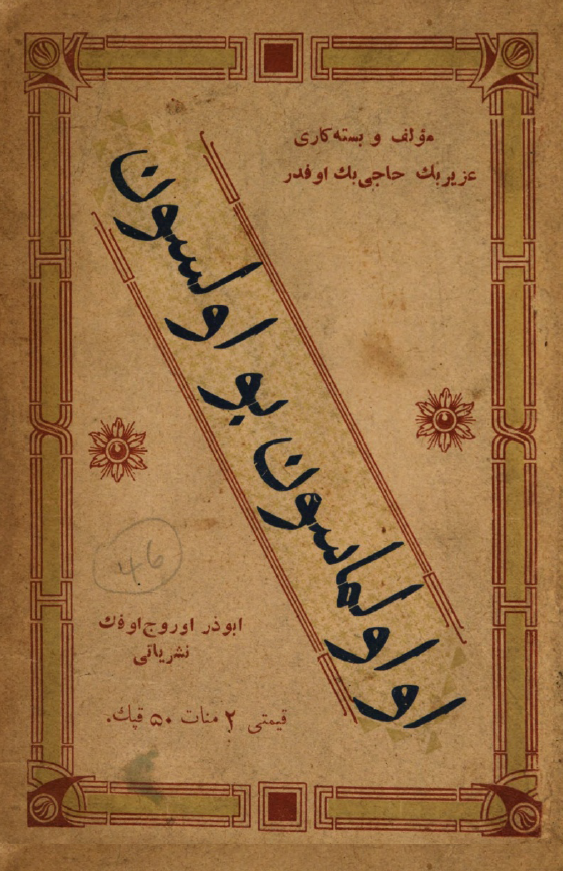 مؤلف و بسته‌کاری
عزیربك حاجی‌بك اوفدر
او اولماسون بو اولسون
46
ابوذر اوروج اوفك
نشریاتی
قیمتی ۲ منات ۵۰ قپك.